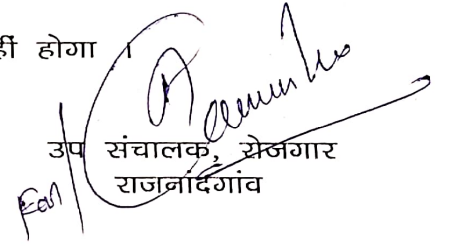 हीं होगा ।
उप संचालक, रोजगार
राजनांदगांव
For